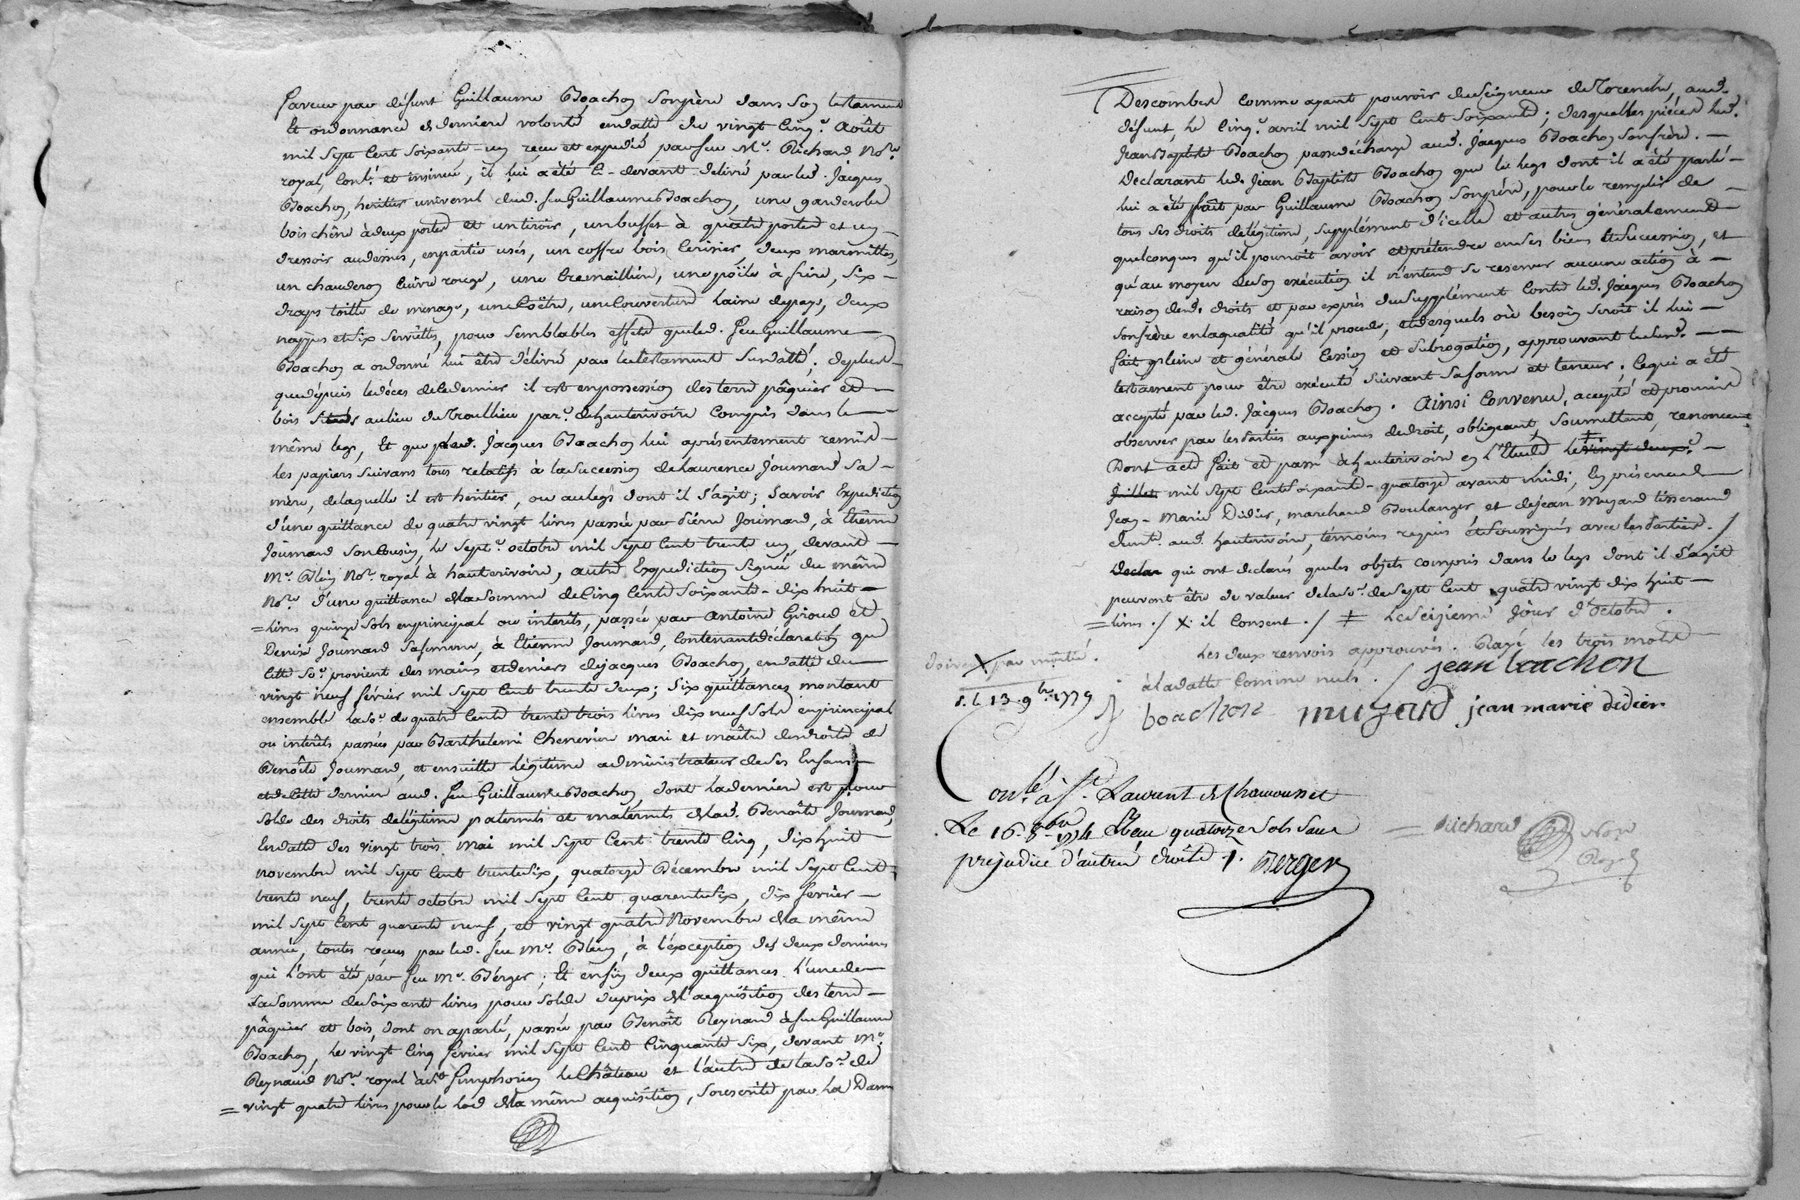 faveur par défunt Guillaume Boachon son père dans son testament
et ordonnance de derniere volonté en datte du vingt cinq.e Août
mil sept cent soixante un reçu et expedié par feu M.e Richard No.re
royal, Con.lé et insinué, il lui a été cy-devant délivré par led. Jacques
Boachon, heritier universel dud. feu Guillaume Boachon, une garderobe
bois chêne à deux portes et un tiroir, un buffet à quatre portes et un
dressoir au dessus, en partie usés, un coffre bois cerisier, deux marmittes,
un chauderon cuivre rouge, une cremaillere, une poile à frire, six
draps toille de menage, une Coëtre, une couverture laine de pays, deux
nappes et six serviettes, pour semblables effets que led. feu Guillaume
Boachon a ordonné lui être délivré par le testament sus datté; de plus
que dépuis le déces de ce dernier il est en possession des terre pâquier et
bois situés au lieu du Trouillieu par.e de hauterivoire compris dans le
même legs, et que led. Jacques Boachon lui a présentement remis
les papiers suivans tous relatifs à la succession de Laurence Joumard sa
mère, de laquelle il est heritier, ou au legs dont il s'agit; savoir Expedition
d'une quittance de quatre vingt livres passée par Pierre Joumard, à Etienne
Joumard son Cousin, le sept.e octobre mil sept cent trente un, devant
M.e Blein No.re royal à hauterivoire, autre Expedition signée du même
No.re d'une quittance de la somme de cinq cents soixante-dix huit
= livres quinze sols en principal ou intérêts, passée par Antoine Giroud et
Denise Joumard sa femme, à Etienne Joumard, contenant déclaration que
cette So.e provient des mains et deniers de Jacques Boachon, en datte du
vingt neuf février mil sept cent trente deux; six quittances montant
ensemble la so.e de quatre cents trente trois livres dix neuf sols en principal
ou intérêts passées par Barthelemi Chenevier mari et maître des droits de
Benoîte Joumard, et ensuitte légitime administrateur de ses Enfans
et de cette derniere aud. feu Guillaume Boachon, dont la derniere est pour
solde des droits de légitime paternels et maternels de lad. Benoîte Joumard,
en datte des vingt trois mai mil sept cent trente cinq, dix huit
novembre mil sept cent trente six, quatorze Décembre mil sept cent
trente neuf, trente octobre mil sept cent quarente six, dix fevrier
mil sept cent quarente neuf, et vingt quatre Novembre de la même
année, toutes reçues par led. feu M.e Blein, à l'éxception des deux dernieres
qui l'ont été par feu M.e Bérger; Et enfin deux quittances. L'une de
la somme de soixante livres pour solde du prix de l'acquisition des terre
pâquier et bois, dont on a parlé, passée par Benoît Reynaud à feu Guillaume
Boachon, le vingt cinq février mil sept cent cinquante six, devant M.e
Reynaud No.re royal à St Simphorien le Château et l'autre de la so.e de
= vingt quatre livres pour le lod de la même acquisition, souscrite par la Dame
Descombes comme ayant pouvoir du Seigneur de Rozende, aud.
défunt, le cinq.e avril mil sept cent soixante; desquelles pièces led.
Jean Baptiste Boachon passe décharge aud. Jacques Boachon son frère.
Déclarant led. Jean Baptiste Boachon que le legs dont il a été parlé
lui a été fait par Guillaume Boachon son père, pour le remplir de
tous ses droits de légitime, supplément d'icelle et autres généralement
quelconques qu'il pourroit avoir et prétendre en ses biens et succession, et
qu'au moyen de son exécution il n'entend se reserver aucune action à
raison desd. droits et par exprès du supplément contre led. Jacques Boachon
son frère en la qualité qu'il procede, et desquels où besoin seroit il lui
fait pleine et générale cession et subrogation, approuvant led.
testament pour être executé suivant sa forme et teneur; ce qui a été
accepté par led. Jacques Boachon. Ainsi convenu, accepté et promis
observer par les Parties aux peines de droit, obligeant, soumettant, renonceant
Dont acte fait et passé à hauterivoire en l'Etude le vingt deux.e
Juillet mil sept cent soixante-quatorze avant midi, en présence de
Jean-Marie Didier, marchand Boulanger et de Jean Muzard tisserand
demt. aud. hauterivoire, témoins requis et soussignés avec les Parties. /
Declar qui ont declarés que les objets compris dans le legs dont il s'agit
peuvent être de valeur de la so.e de sept cent quatre vingt dix huit
= livres. / X il consent. / ‡ le seizieme jour d'octobre.
Les deux renvois approuvés. Rayé les trois mots
à la datte comme nuls. / jean boachon
doivent par moitié.
s. l. 13. 9bre 1779
J boachon muzard jean marie didier
Con.lé à St. Laurent de Chamousset
Le 16. 8bre 1774 Reçu quatorze sols sans
préjudice d'autres droits. Berger
Richard No.re
Roy.l